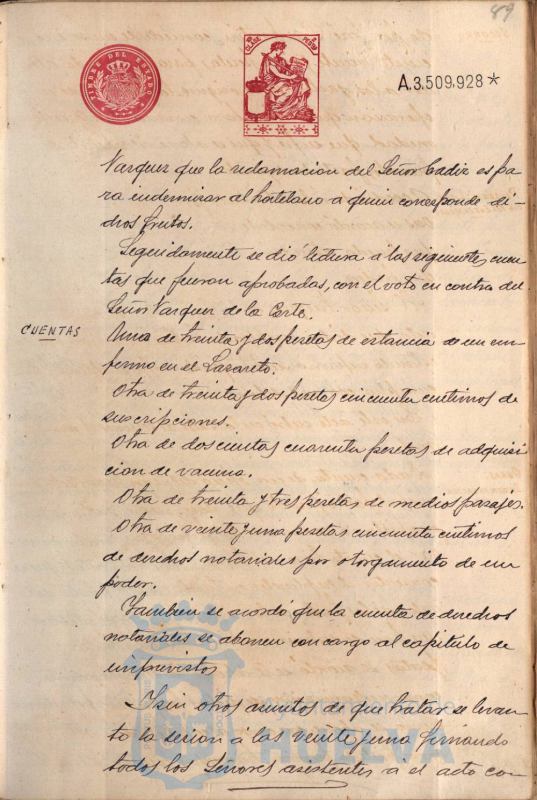 89
TIMBRE DEL ESTADO
A.3.509.928*
Vazquez que la reclamacion del Señor Cadiz es pa-
ra indemnizar al hortelano á quien corresponde di-
chos frutos.
Seguidamente se dió lectura á las siguientes cuen-
tas que fueron aprobadas, con el voto en contra del
Señor Vazquez de la Corte.
CUENTAS
Una de treinta y dos pesetas de estancia de un en-
fermo en el Lazareto.
Otra de treinta y dos pesetas cincuenta centimos de
suscripciones.
Otra de doscientas cuarenta pesetas de adquisi-
cion de vacuna.
Otra de treinta y tres pesetas de medios pasajes.
Otra de veinte y una pesetas cincuenta centimos
de derechos notariales por otorgamiento de un
poder.
Tambien se acordó que la cuenta de derechos
notariales se abonen con cargo al capitulo de
imprevistos
Y sin otros asuntos de que tratar se levan-
to la sesion á las veinte y una firmando
todos los Señores asistentes á el acto con-
HUELVA